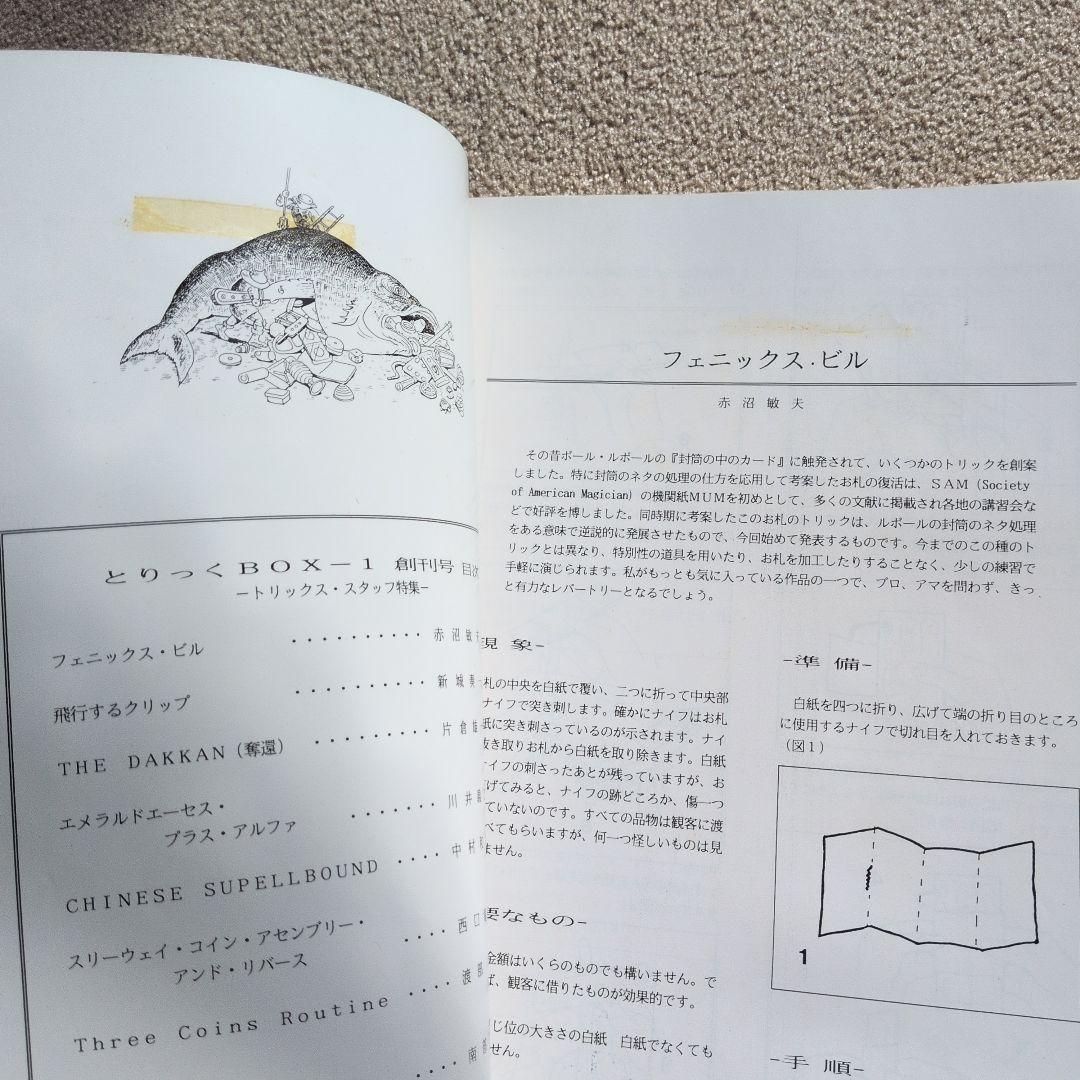 とりっくBOX－1 創刊号 目次
－トリックス・スタッフ特集－
フェニックス・ビル ・・・・・・・・・・・ 赤沼敏夫
飛行するクリップ ・・・・・・・・・・・ 新城
THE DAKKAN（奪還） ・・・・・・・・・ 片倉雄一
エメラルドエーセス・
プラス・アルファ ・・・・・・・ 川井
CHINESE SUPELLBOUND ・・・・ 中村
スリーウェイ・コイン・アセンブリー・
アンド・リバース ・・・・ 西口
Three Coins Routine ・・・・ 渡部
・・・・ 南
フェニックス・ビル
赤沼敏夫
その昔ポール・ルポールの『封筒の中のカード』に触発されて、いくつかのトリックを創案
しました。特に封筒のネタの処理の仕方を応用して考案したお札の復活は、ＳＡＭ（Society
of American Magician）の機関紙ＭＵＭを初めとして、多くの文献に掲載され各地の講習会な
どで好評を博しました。同時期に考案したこのお札のトリックは、ルポールの封筒のネタ処理
をある意味で逆説的に発展させたもので、今回始めて発表するものです。今までのこの種のト
リックとは異なり、特別性の道具を用いたり、お札を加工したりすることなく、少しの練習で
手軽に演じられます。私がもっとも気に入っている作品の一つで、プロ、アマを問わず、きっ
と有力なレパートリーとなるでしょう。
現 象-
札の中央を白紙で覆い、二つに折って中央部
ナイフで突き刺します。確かにナイフはお札
紙に突き刺さっているのが示されます。ナイ
抜き取りお札から白紙を取り除きます。白紙
ナイフの刺さったあとが残っていますが、お
げてみると、ナイフの跡どころか、傷一つ
ていないのです。すべての品物は観客に渡
べてもらいますが、何一つ怪しいものは見
ません。
要なもの-
金額はいくらのものでも構いません。で
ば、観客に借りたものが効果的です。
じ位の大きさの白紙 白紙でなくても
せん。
-準 備-
白紙を四つに折り、広げて端の折り目のところ
に使用するナイフで切れ目を入れておきます。
（図１）
1
-手 順-